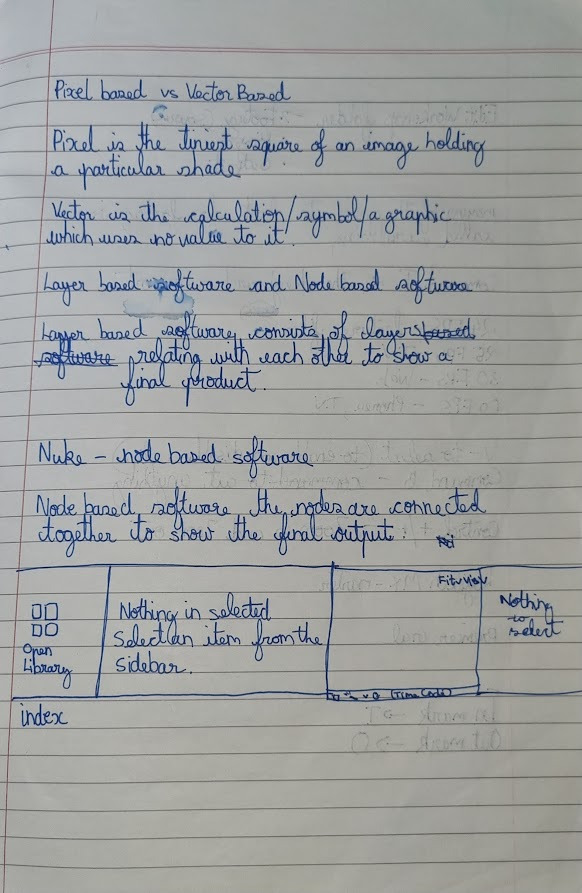 Pixel based vs Vector Based
Pixel is the tiniest square of an image holding
a particular shade.
Vector is the calculation/symbol/a graphic
which uses no value to it.
Layer based software and Node based software
Layer based software, consists of layers based
software relating with each other to show a
final product.
Nuke - node based software
Node based, software the, nodes are connected
together to show the final output.
Open
Library
Nothing in selected
Select an item from the
sidebar.
Fit view
(Time Code)
Nothing
to
select
index